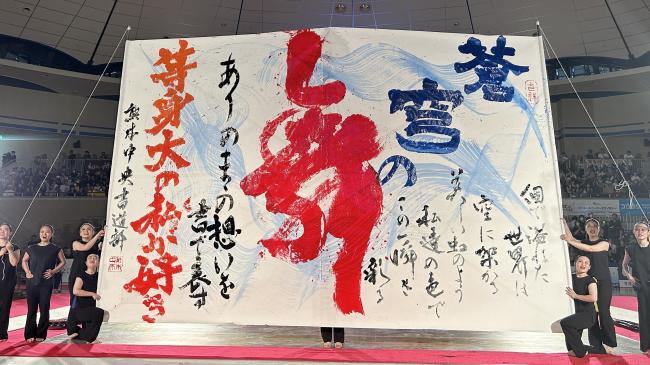 蒼穹の
個で溢れた
世界は
空に架かる
美しい虹のよう
私達の色で
この一瞬を
彩る
ありのままの想いを
書で表す
等身大の私が好き
熊本中央書道部